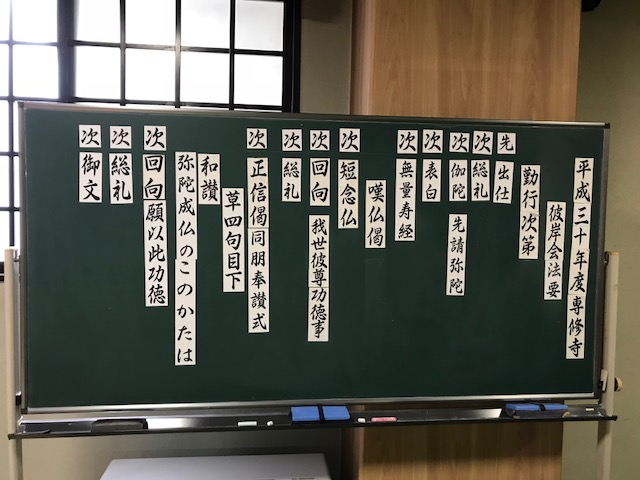 平成三十年度専修寺
彼岸会法要
勤行次第
先 出仕
次 総礼
次 伽陀 先請弥陀
次 表白
次 無量寿経
嘆仏偈
次 短念仏
次 回向 我世彼尊功徳事
次 総礼
次 正信偈 同朋奉讃式
草四句目下
和讃
弥陀成仏のこのかたは
次 回向 願以此功徳
次 総礼
次 御文